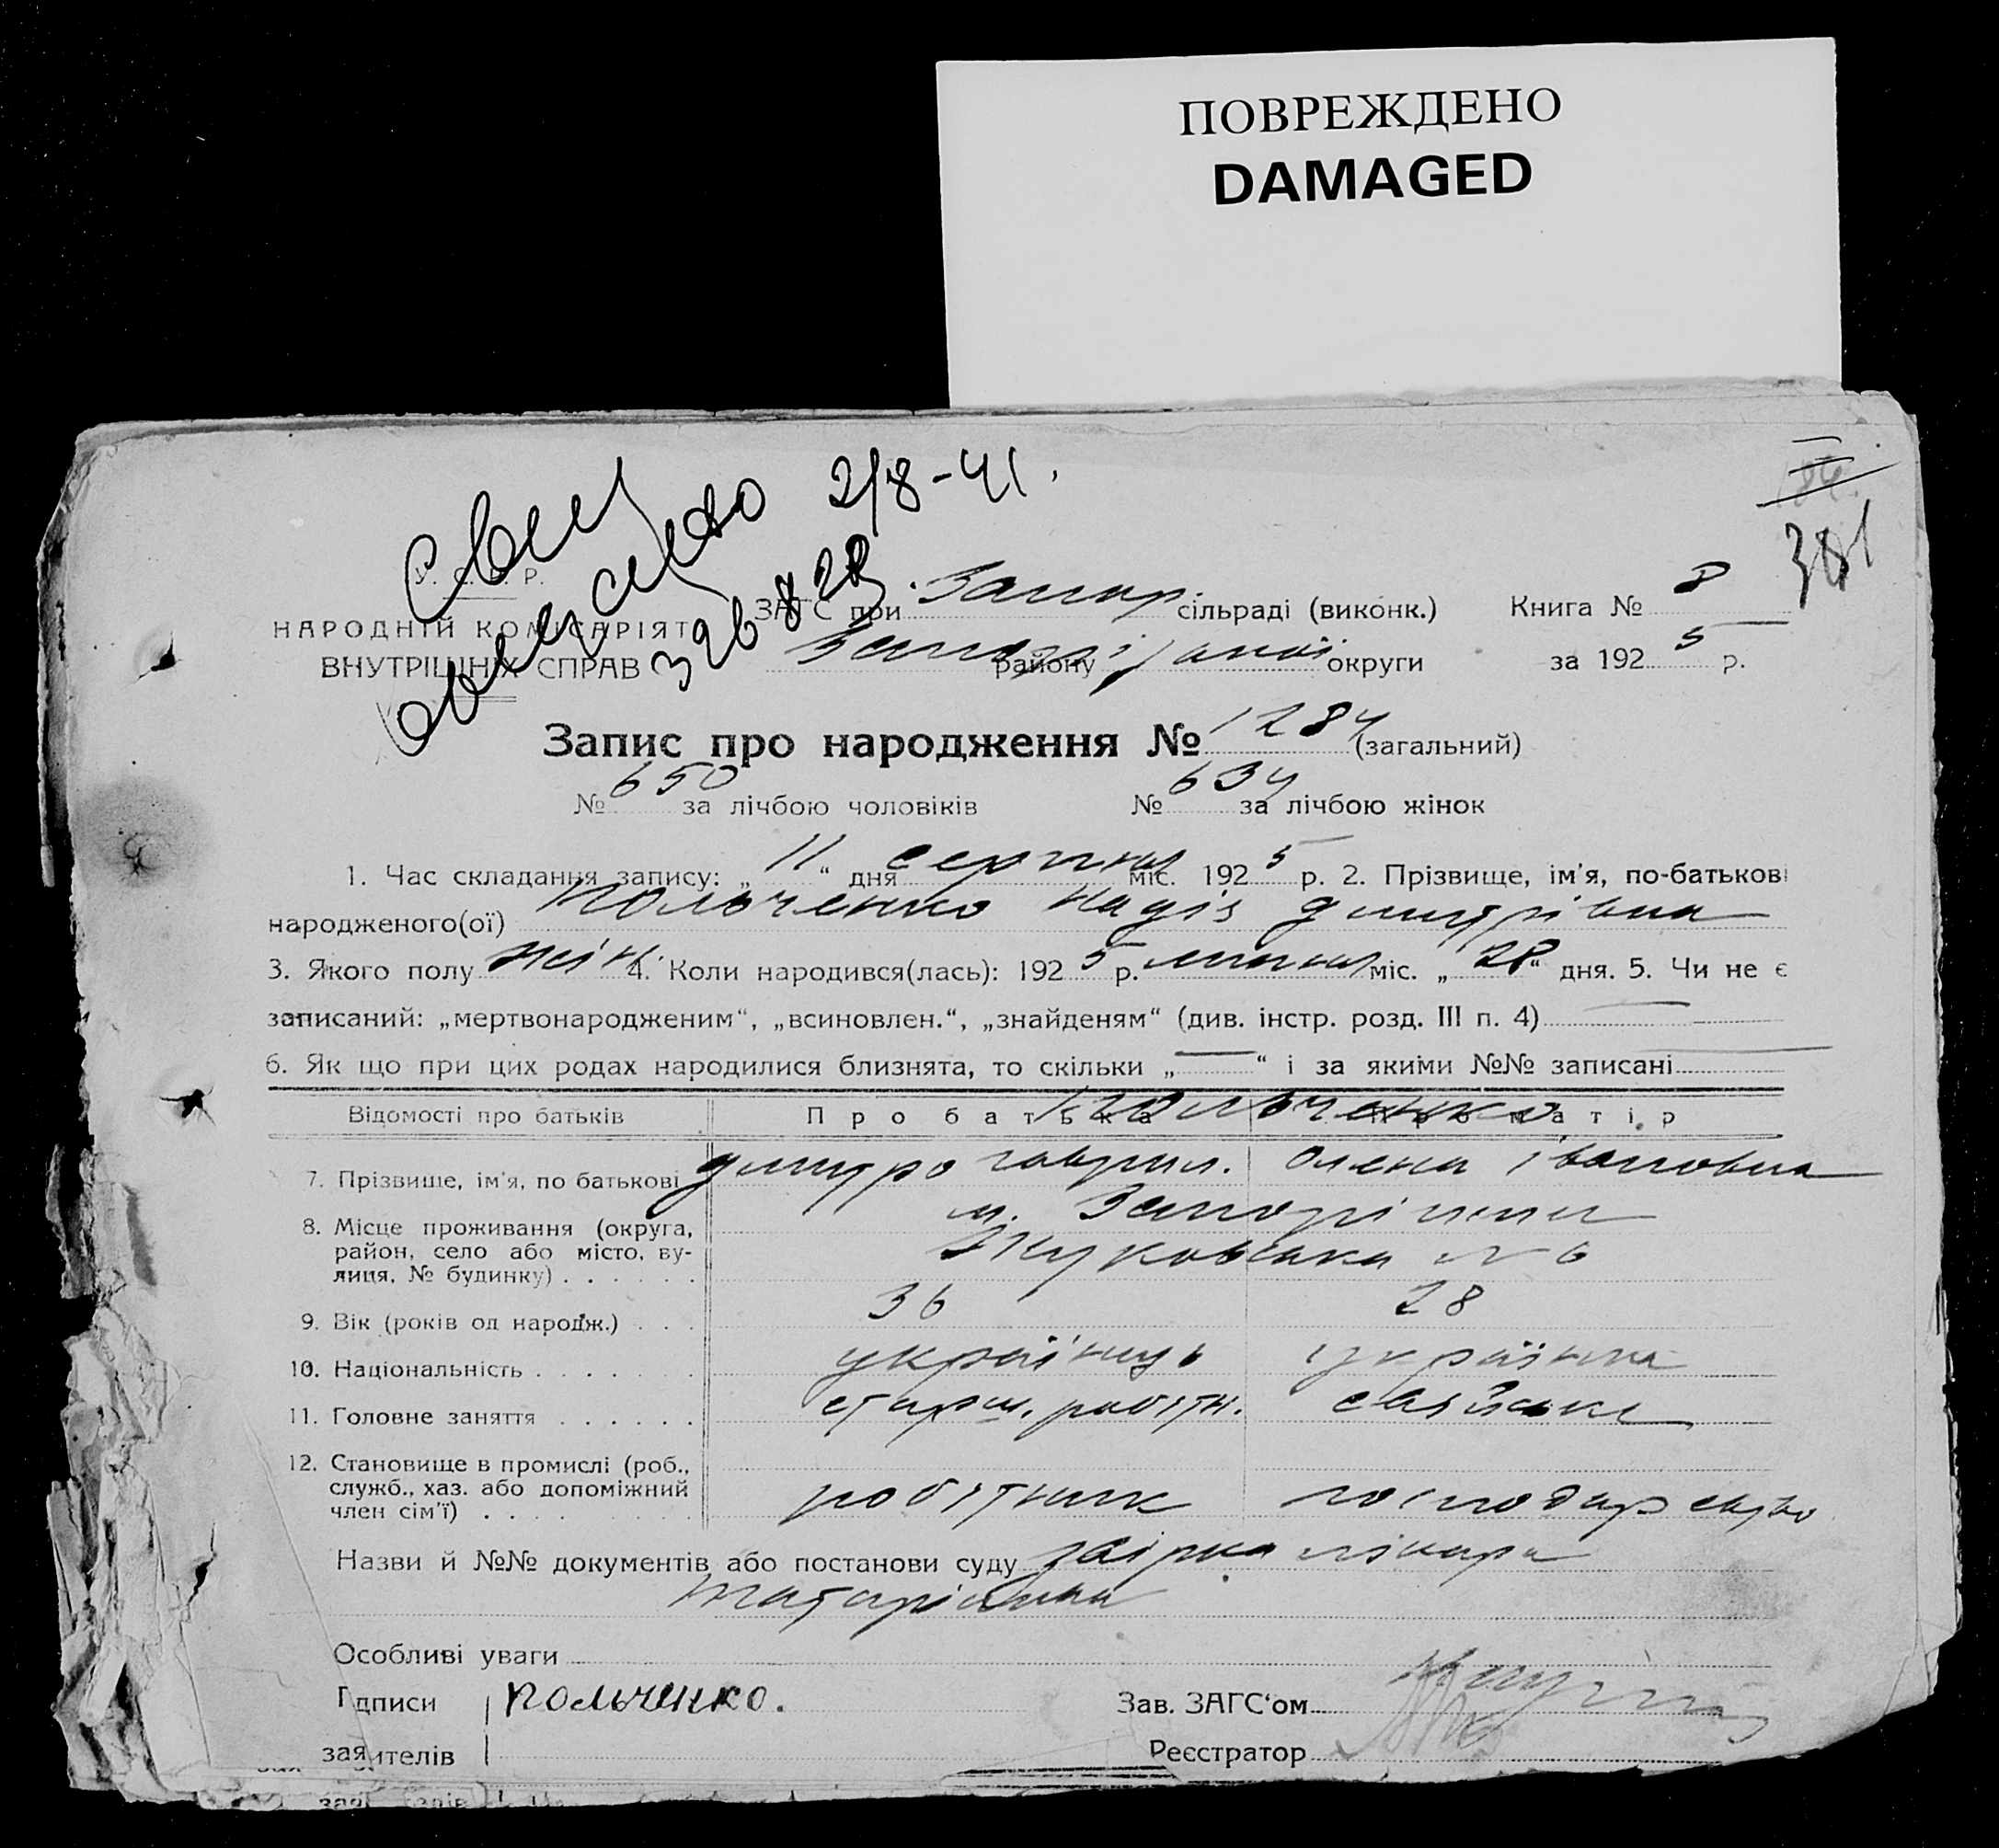 ПОВРЕЖДЕНО
DAMAGED
2/8-41.
381
У. С. Р. Р.
НАРОДНІЙ КОМІСАРІЯТ
ВНУТРІШНІХ СПРАВ
ЗАГС при Запор. сільраді (виконк.) Книга № 8
району округи за 1925 р.
Запис про народження № 1284 (загальний)
№ 650 за лічбою чоловіків № 634 за лічбою жінок
1. Час складання запису: „ 11 “ дня серпня міс. 1925 р. 2. Прізвище, ім'я, по-батькові
народженого(ої) Польченко Надія Дмитрівна
3. Якого полу жін. 4. Коли народився(лась): 1925 р. липня міс. „ 28 “ дня. 5. Чи не є
записаний: „мертвонародженим“, „всиновлен.“, „знайденям“ (див. інстр. розд. III п. 4)
6. Як що при цих родах народилися близнята, то скільки „ — “ і за якими №№ записані
Відомості про батьків Про батька Про матір
Польченко
7. Прізвище, ім'я, по батькові Дмитро Гаврил. Олена Івановна
8. Місце проживання (округа, район, село або місто, вулиця, № будинку) м. Запоріжжя
Жуковська № 6
9. Вік (років од народж.) 36 28
10. Національність українець українка
11. Головне заняття старш. робітн. хазяйка
12. Становище в промислі (роб., служб., хаз. або допоміжний член сім'ї) робітник господарство
Назви й №№ документів або постанови суду довідка лікаря
Особливі уваги
Підписи Польченко.
заявителів
Зав. ЗАГС'ом
Реєстратор